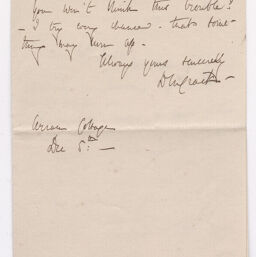 you won't think this trouble?
- I try every chance - that some-
thing may turn up -
Always yours sincerely

Cottage
Dec 5th -